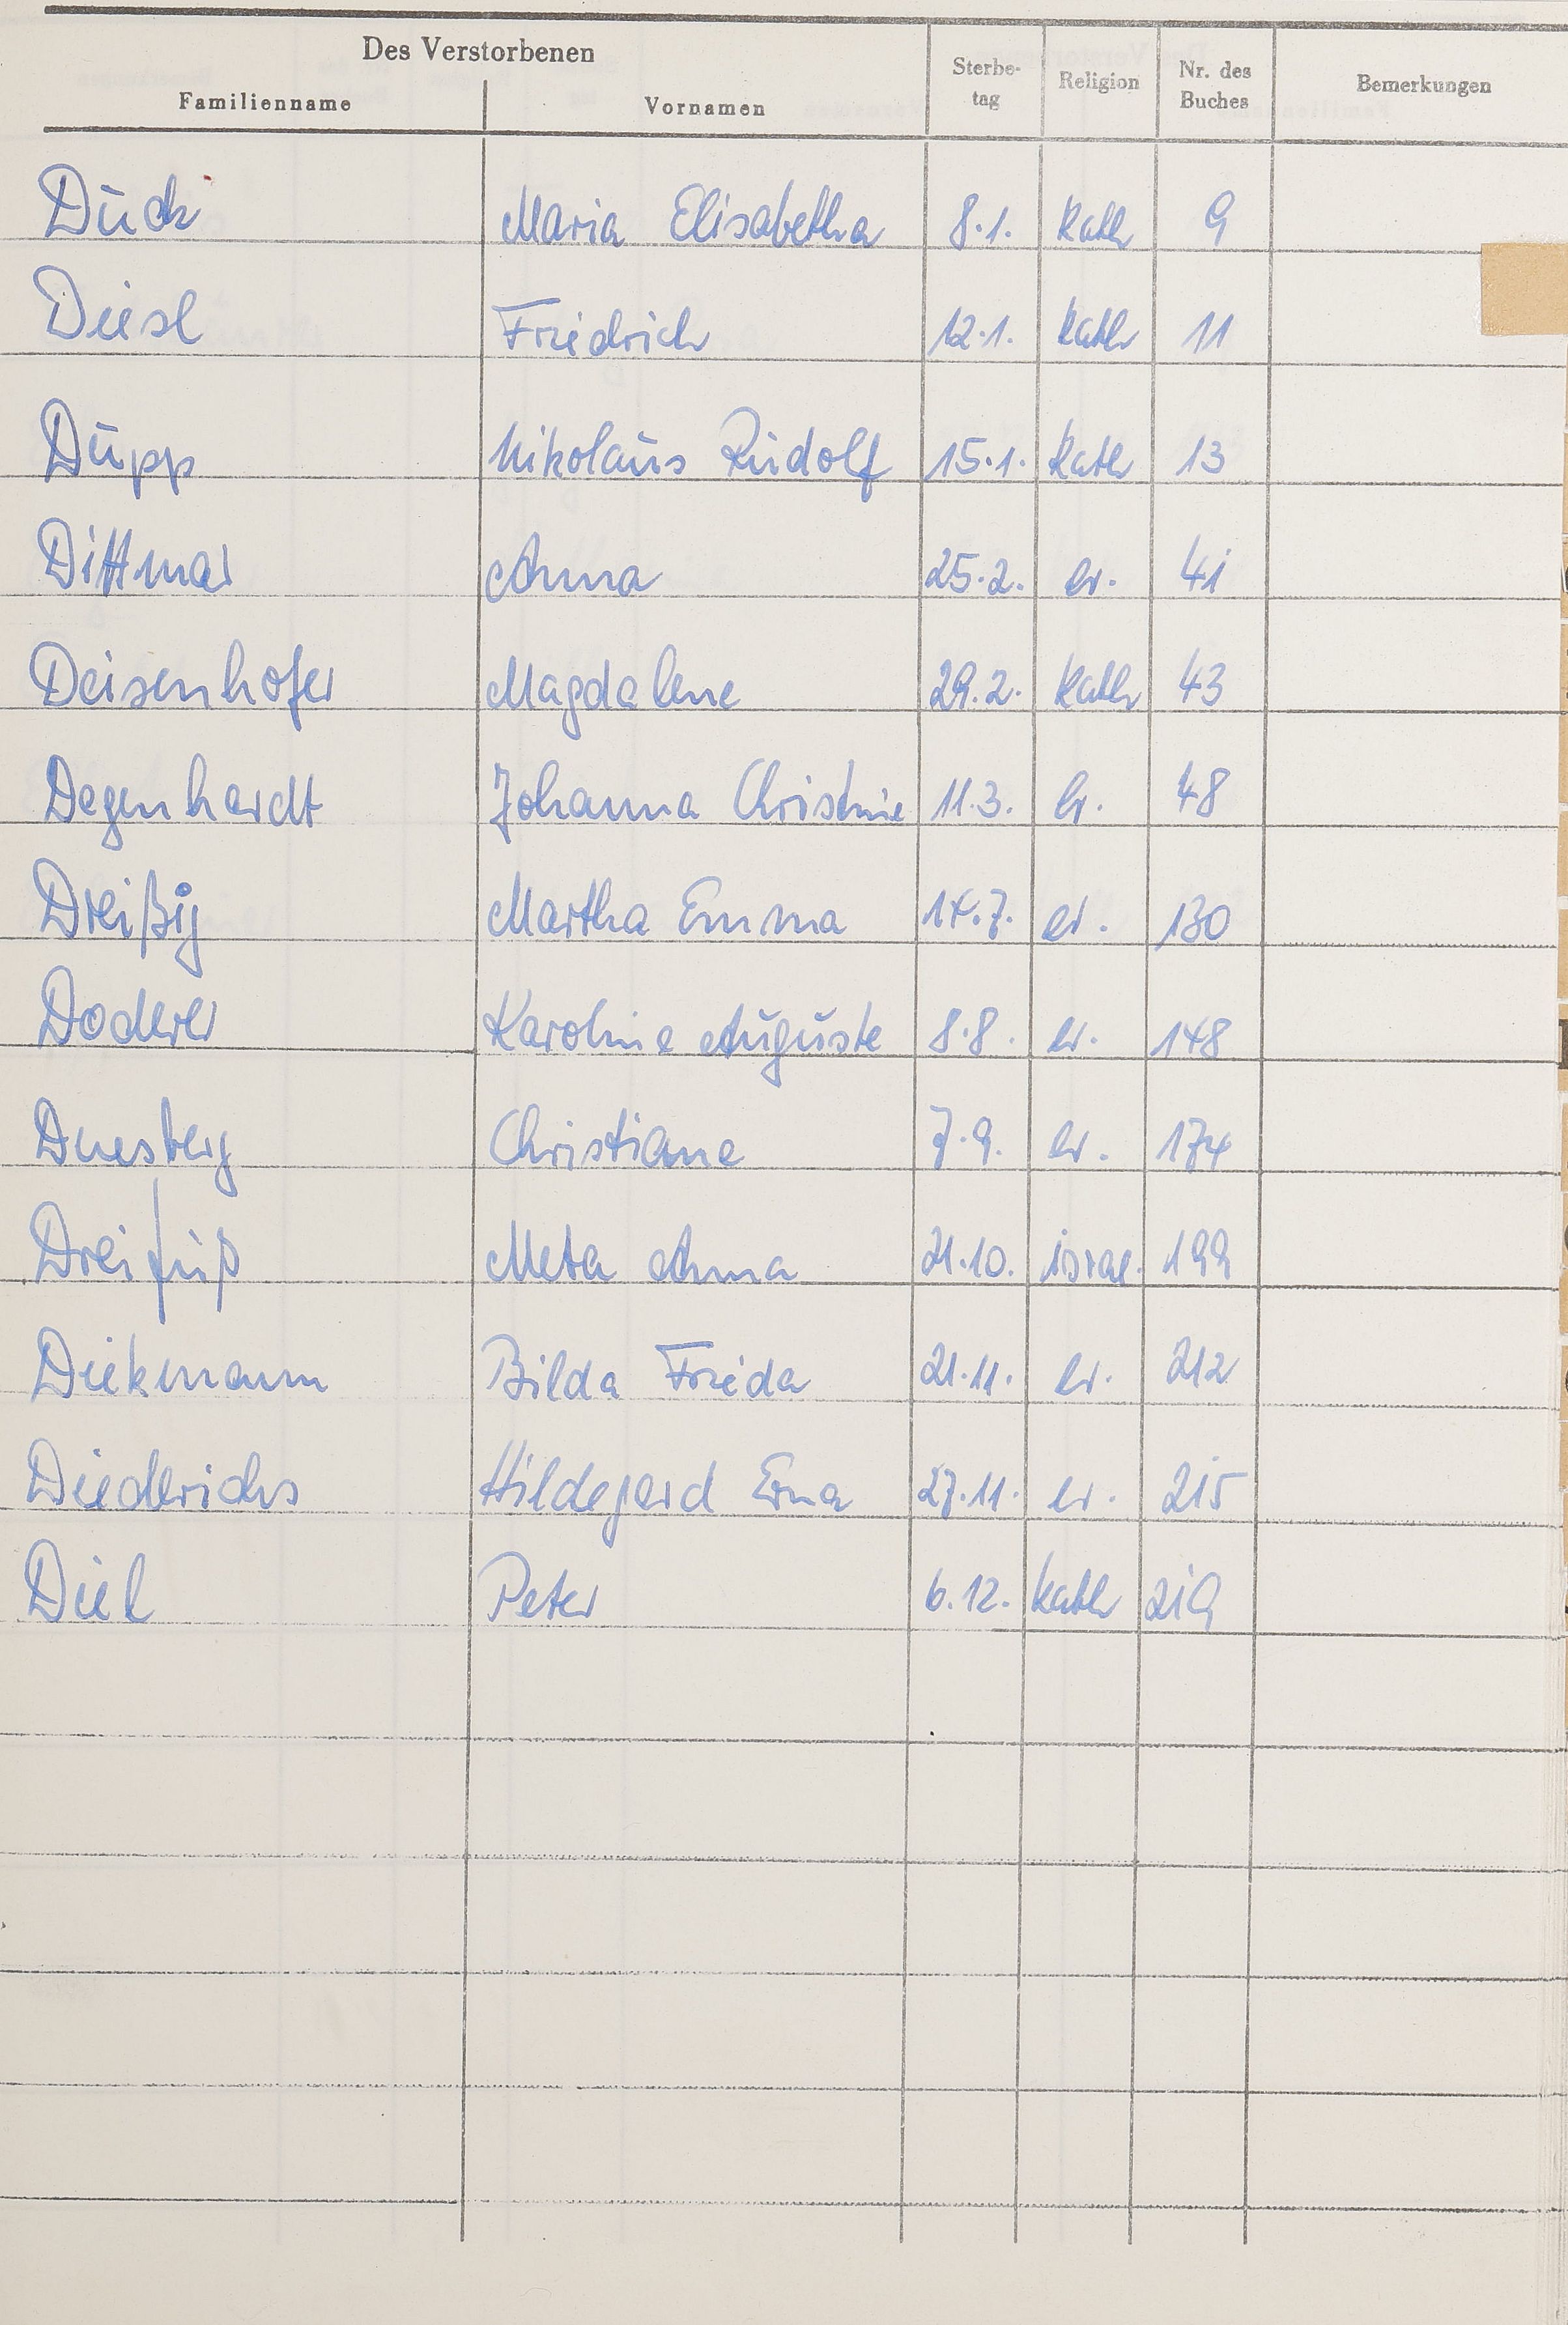 Des Verstorbenen
Familienname Vornamen Sterbe-tag Religion Nr. des Buches Bemerkungen
Duck Maria Elisabetha 8.1. kath 9
Diesl Friedrich 12.1. kath 11
Dupp Nikolaus Rudolf 15.1. kath 13
Dittmar Anna 25.2. ev. 41
Deisenhofer Magdalene 29.2. kath 43
Degenhardt Johanna Christine 11.3. ev. 48
Dreißig Martha Emma 14.7. ev. 130
Doderer Karoline Auguste 8.8. ev. 148
Duesberg Christiane 7.9. ev. 174
Dreifuß Meta Anna 21.10. israe. 199
Diekmann Bilda Frieda 21.11. ev. 212
Diederichs Hildegard Erna 27.11. ev. 215
Diel Peter 6.12. kath 219